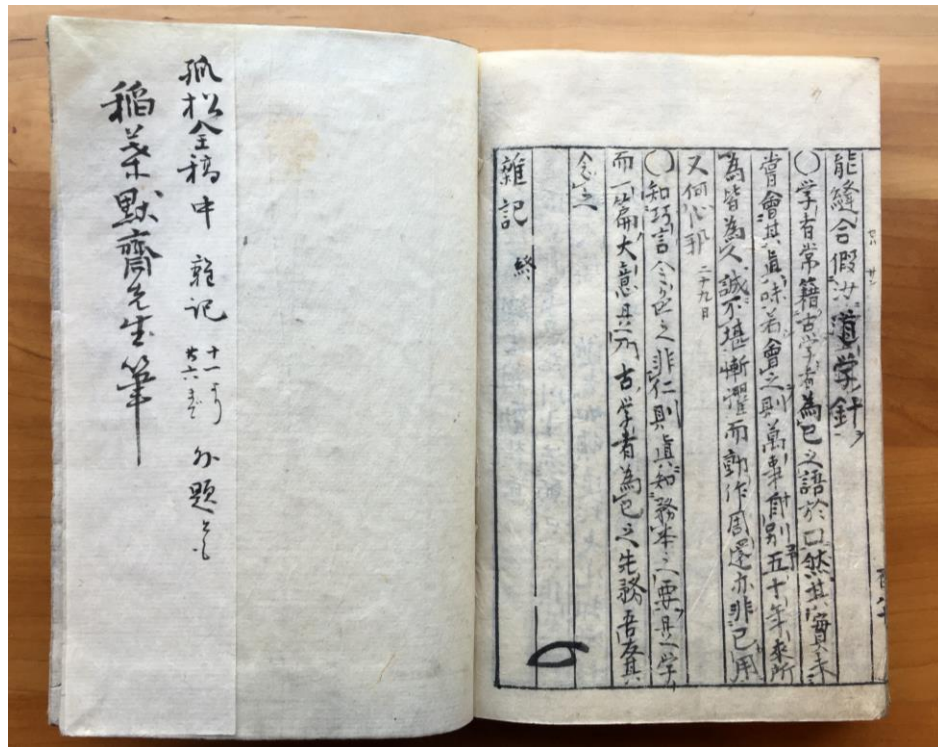 能縫合假以道学針
○学者常籍古学者為己之語於口然其實未
嘗會其真味若會之則萬事自別五十年来所
為皆為人誠不堪慚懼而動作周還亦非己用
又何心耶 二十九日
○知巧言令色之非仁則真知務本之要是一学
而一篇大意具所古学者為己之先務吾友其
念之
雜記 終
孤松全稿中 雜记 十一 外題とも
稲葉默齋先生筆